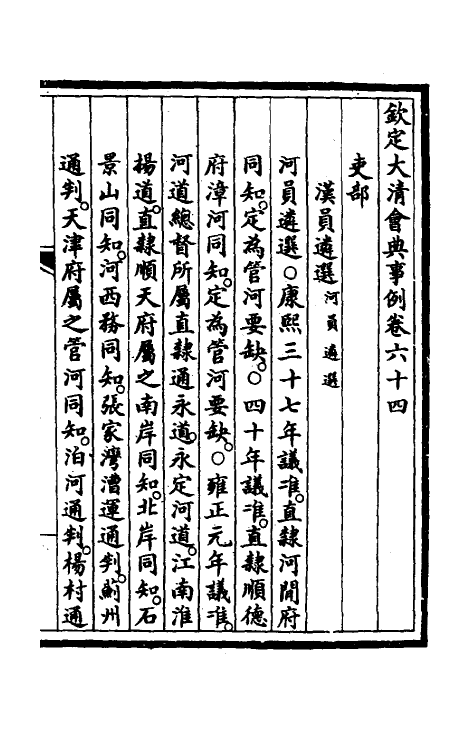 欽定大清會典事例卷六十四
吏部
漢員遴選河員遴選
河員遴選○康熙三十七年議准。直隸河閒府
同知。定為管河要缺。○四十年議准。直隸順德
府漳河同知。定為管河要缺。○雍正元年議准。
河道總督所屬直隸通永道。永定河道。江南淮
揚道。直隸順天府屬之南岸同知。北岸同知。石
景山同知。河西務同知。張家灣漕運通判。薊州
通判。天津府屬之管河同知。泊河通判。楊村通